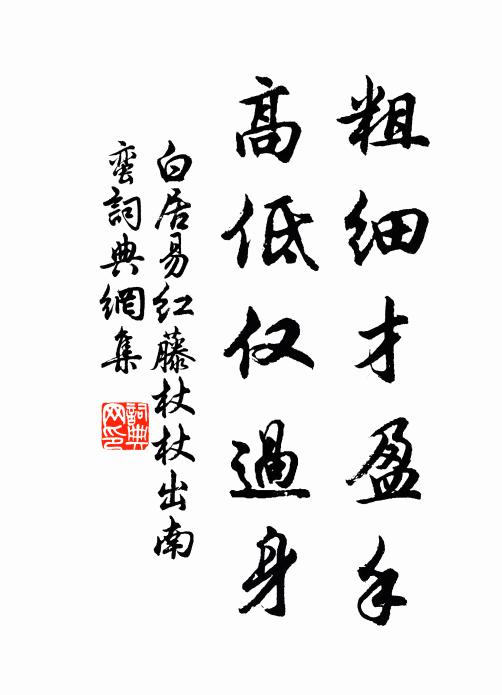 粗细才盈手
高低仅過身
白居易红藤杖杖出南
蛮詞典網集
詞典网印